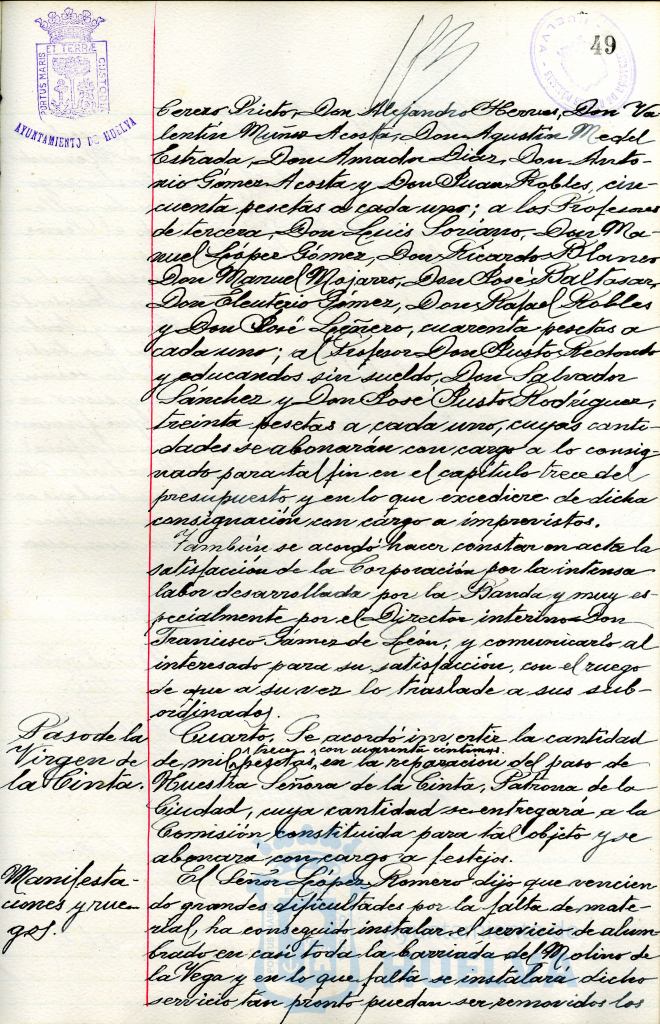 49
PORTUS MARIS ET TERRÆ CUSTODIA
AYUNTAMIENTO DE HUELVA
Cerezo Prieto, Don Alejandro Herves, Don Va-
lentín Muñoz Acosta, Don Agustín Medel
Estrada, Don Amador Díaz, Don Anto-
nio Gómez Acosta y Don Juan Robles, cin-
cuenta pesetas a cada uno; a los Profesores
de tercera, Don Luis Soriano, Don Ma-
nuel López Gómez, Don Ricardo Blanco
Don Manuel Mojarro, Don José Baltasar,
Don Eleuterio Gómez, Don Rafael Robles
y Don José Leñero, cuarenta pesetas a
cada uno; al Profesor Don Justo Redondo
y educandos sin sueldo, Don Salvador
Sánchez y Don José Justo Rodríguez,
treinta pesetas a cada uno, cuyas canti-
dades se abonarán con cargo a lo consig-
nado para tal fin en el capítulo trece del
presupuesto y en lo que excediere de dicha
consignación con cargo a imprevistos.
También se acordó hacer constar en acta la
satisfacción de la Corporación por la intensa
labor desarrollada por la Banda y muy es-
pecialmente por el Director interino Don
Francisco Gámez de León, y comunicarlo al
interesado para su satisfacción, con el ruego
de que a su vez lo traslade a sus sub-
ordinados.
Paso de la
Virgen de
la Cinta.
Cuarto. Se acordó invertir la cantidad
de mil trece pesetas con cuarenta céntimos, en la reparación del paso de
Nuestra Señora de la Cinta, Patrona de la
Ciudad, cuya cantidad se entregará a la
Comisión constituida para tal objeto y se
abonará con cargo a festejos.
Manifesta-
ciones y rue-
gos.
El Señor López Romero dijo que vencien-
do grandes dificultades por la falta de mate-
rial, ha conseguido instalar el servicio de alum-
brado en casi toda la barriada del Molino de
la Vega y en lo que falta se instalará dicho
servicio tan pronto puedan ser removidos los
HUELVA